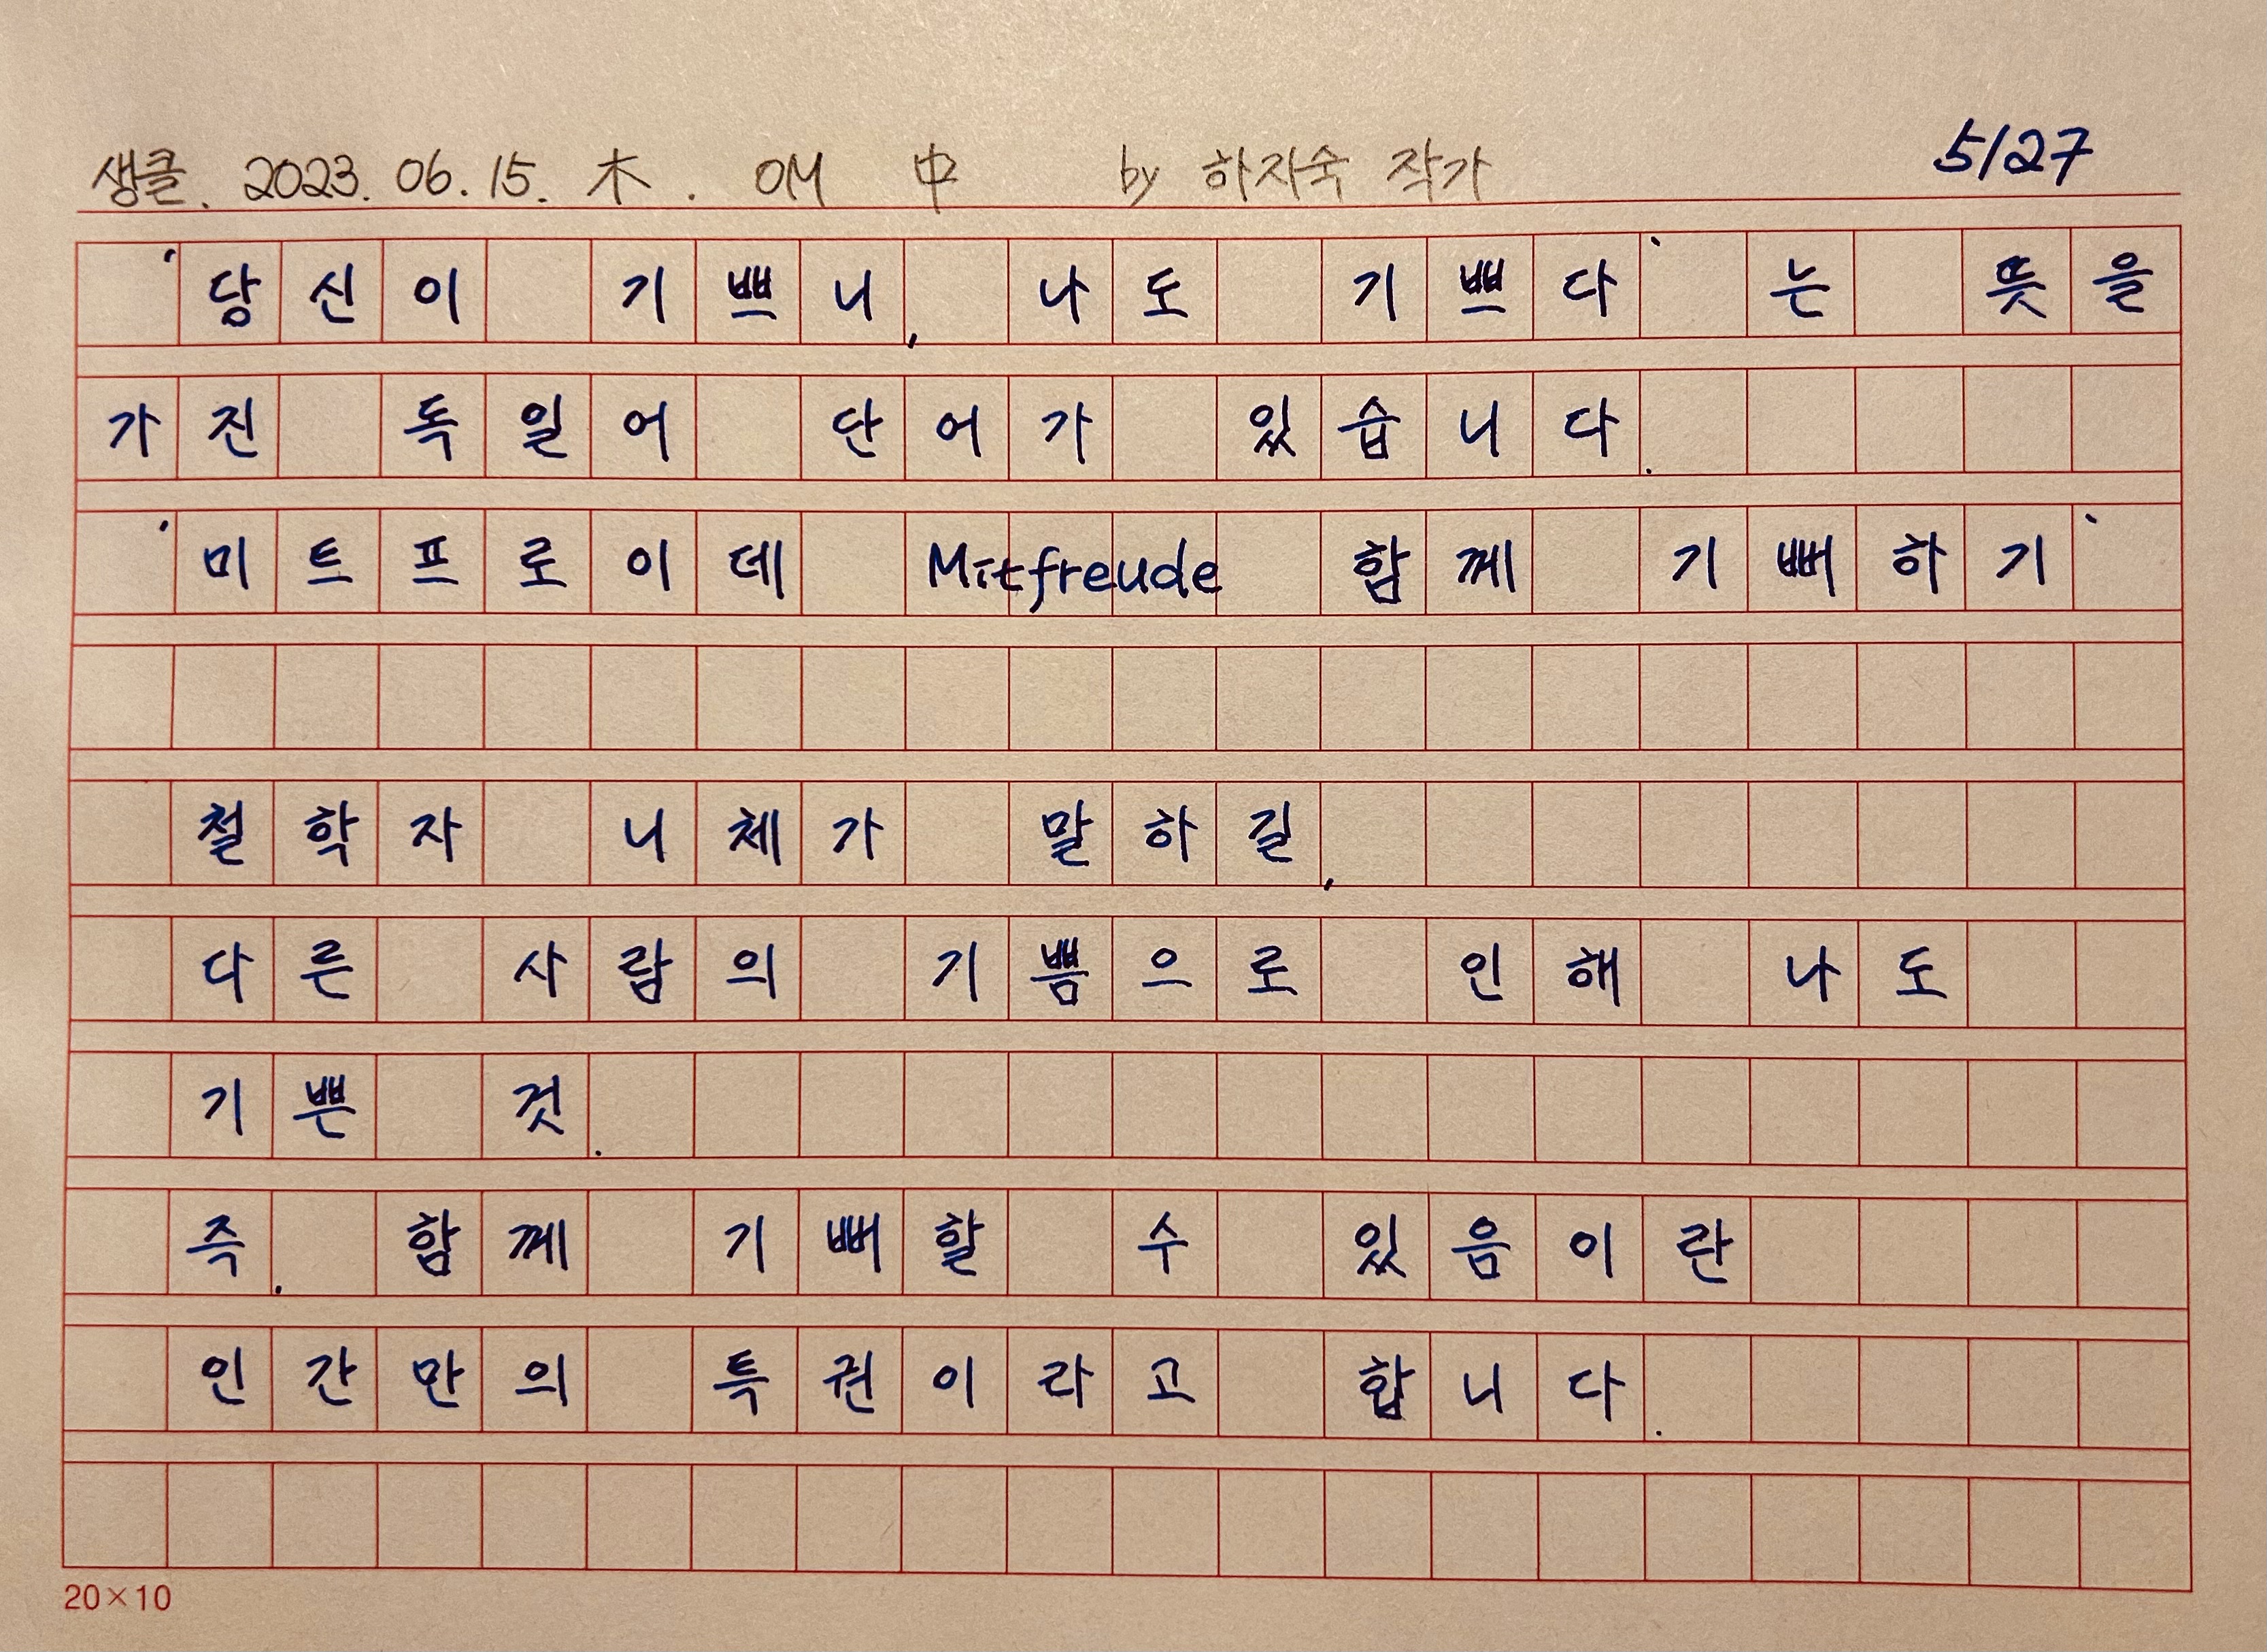 생클. 2023. 06. 15. 木. OM 中 by 하자숙 작가 5/27
'당신이 기쁘니, 나도 기쁘다' 는 뜻을
가진 독일어 단어가 있습니다.
'미트프로이데 Mitfreude 함께 기뻐하기'
철학자 니체가 말하길,
다른 사람의 기쁨으로 인해 나도
기쁜 것.
즉. 함께 기뻐할 수 있음이란
인간만의 특권이라고 합니다.
20×10